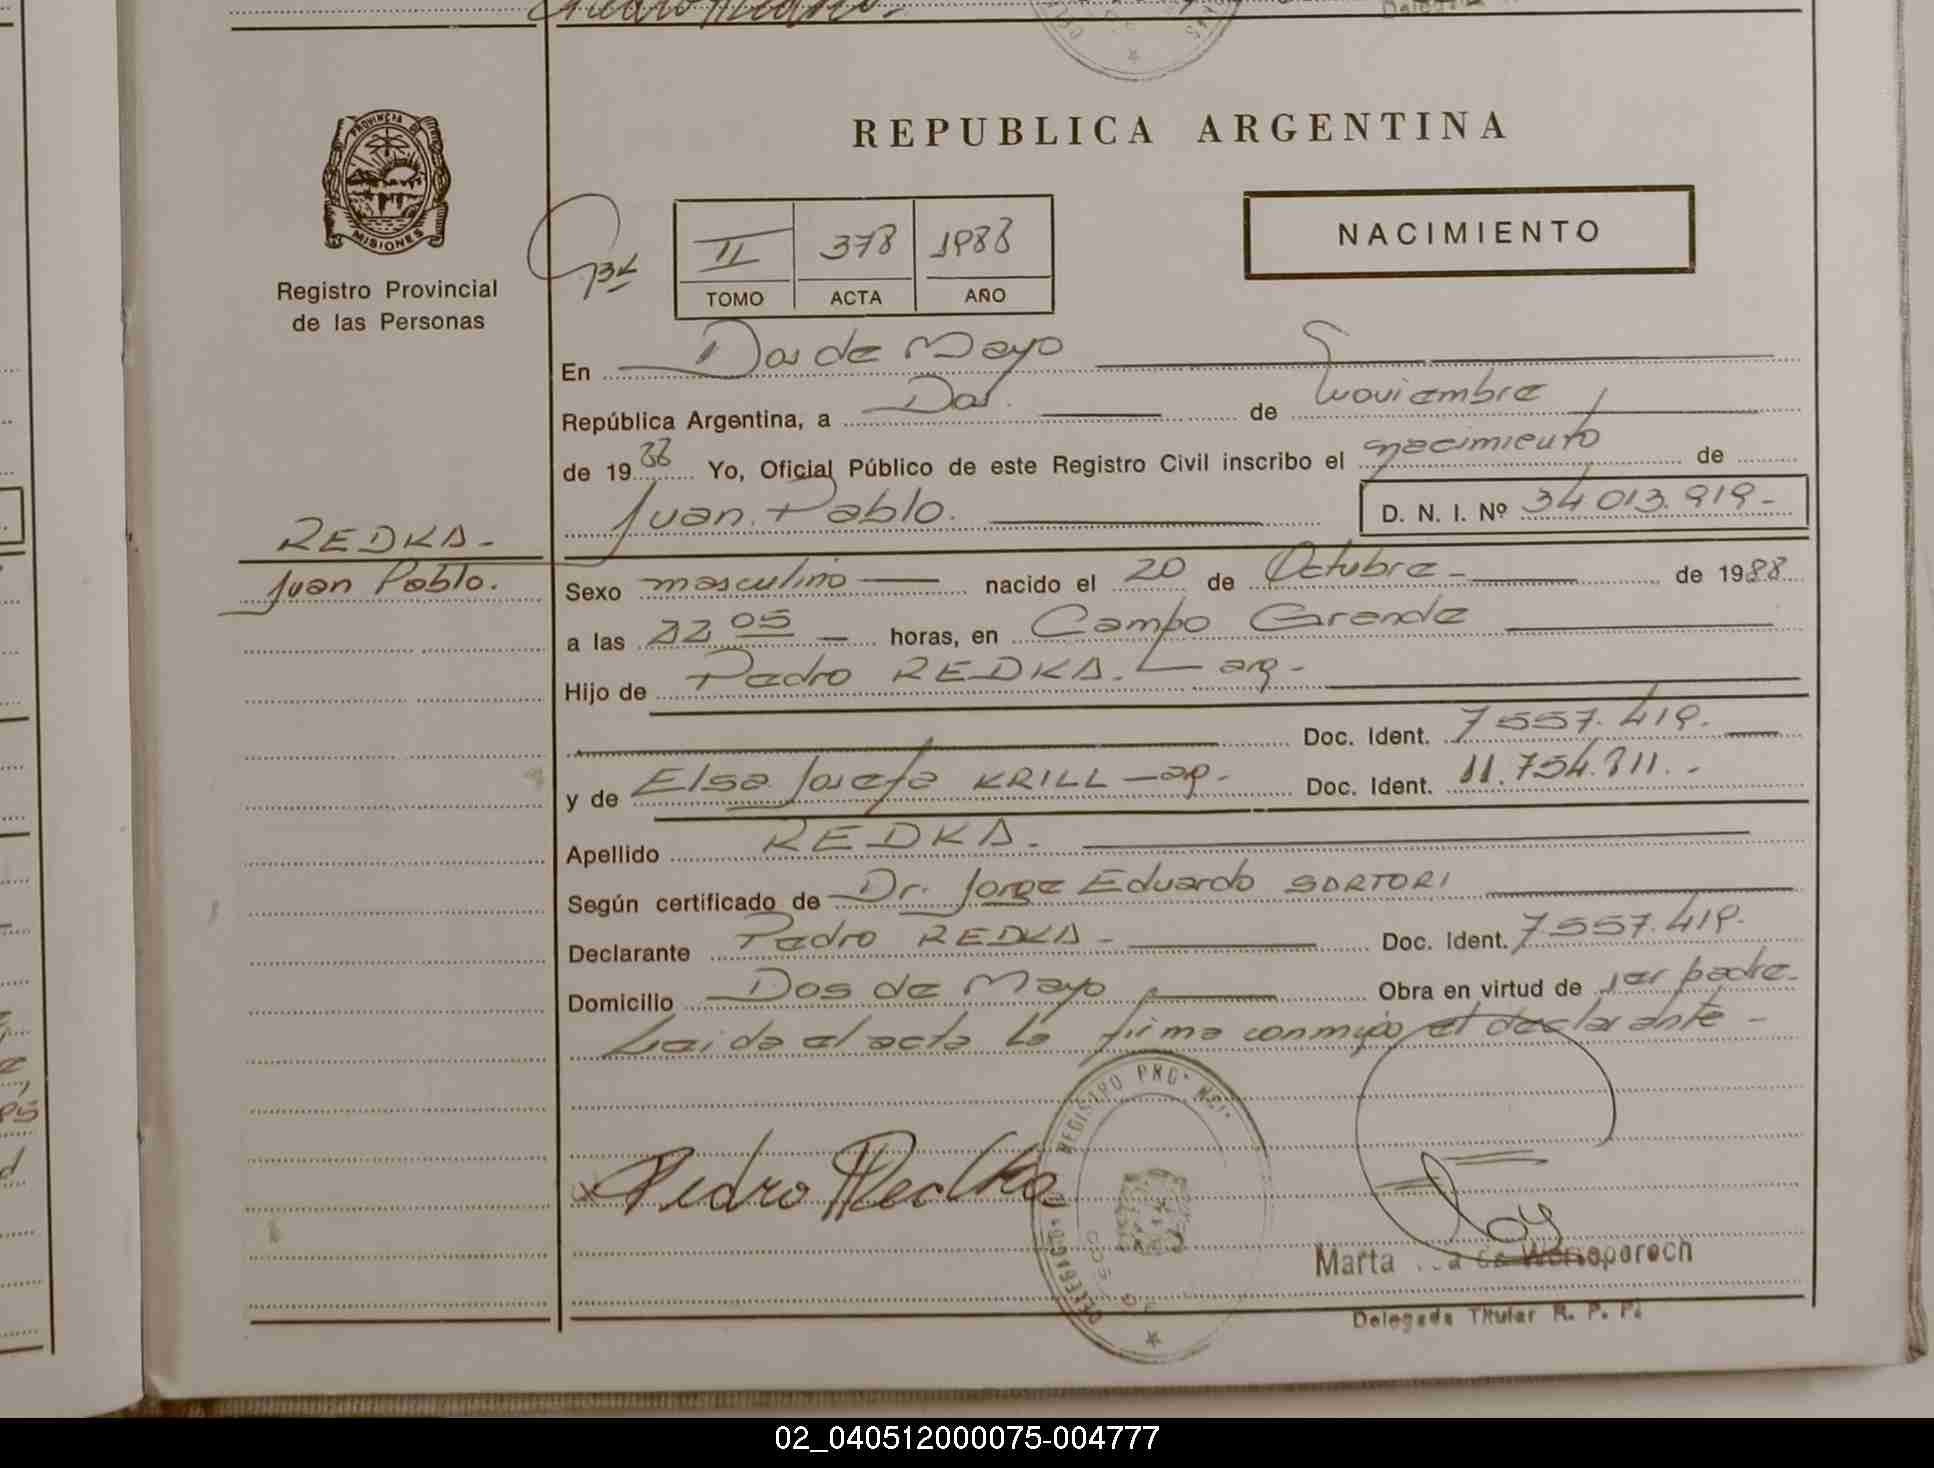 PROVINCIA DE
MISIONES
Registro Provincial
de las Personas
REDKA.-
Juan Pablo.
REPUBLICA ARGENTINA
NACIMIENTO
II 378 1988
TOMO ACTA AÑO
En Dos de Mayo
República Argentina, a Dos. de noviembre
de 1988 Yo, Oficial Público de este Registro Civil inscribo el nacimiento de
Juan Pablo. D. N. I. Nº 34 013.919-
Sexo masculino nacido el 20 de Octubre - de 1988
a las 22 05 horas, en Campo Grande
Hijo de Pedro REDKA. - arg-
Doc. Ident. 7 557.419.
y de Elsa Josefa KRILL - arg- Doc. Ident. 11.754.811.-
Apellido REDKA.
Según certificado de Dr. Jorge Eduardo SARTORI
Declarante Pedro REDKA - Doc. Ident. 7 557.419.
Domicilio Dos de Mayo Obra en virtud de ser padre.
Leida el acta la firma conmigo el declarante -
Pedro Redka
REGISTRO
Marta
Delegada Titular R. P. P.
02_040512000075-004777